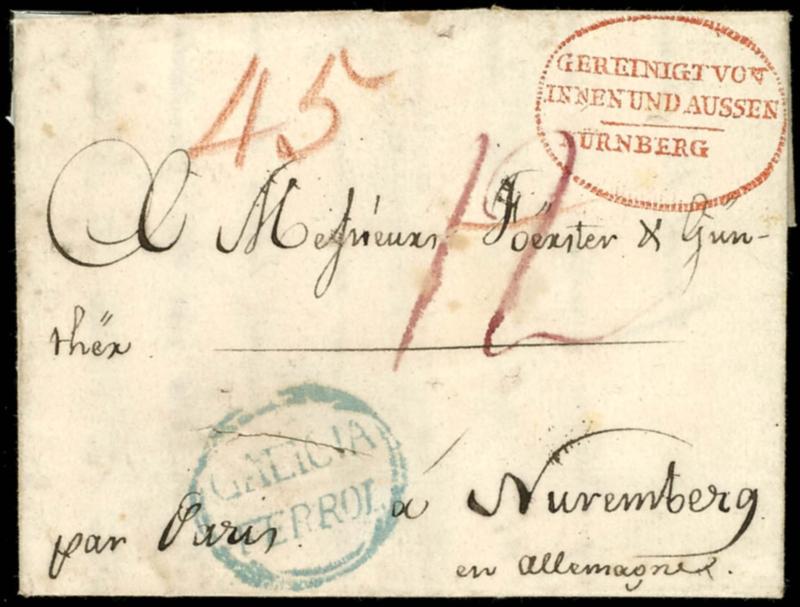 45
GEREINIGT VON
INNEN UND AUSSEN
NÜRNBERG
12
A Messieurs Föerster & Gün-
thër
GALICIA
FERROL
par Paris. à Nuremberg
en Allemagne.